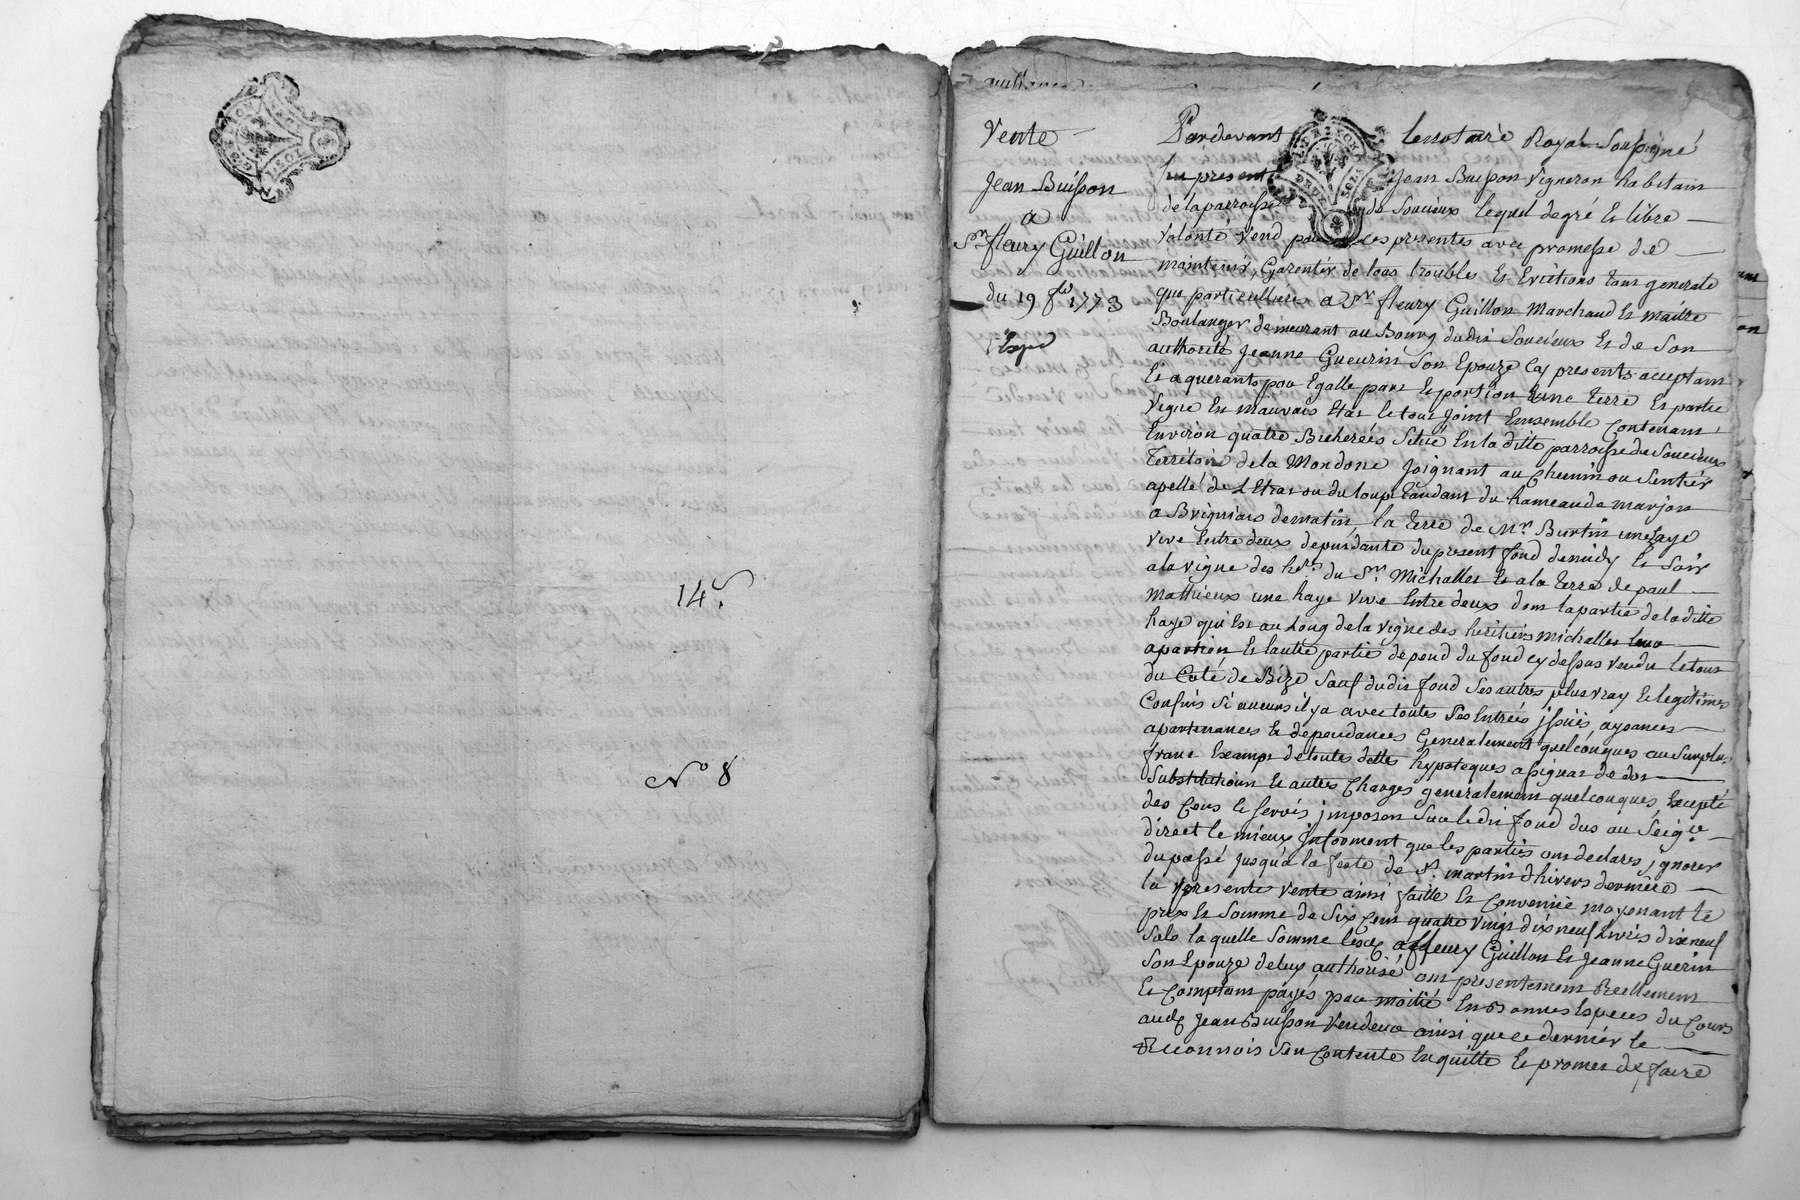 14.
N° 8
Vente
Jean Buisson
a
Sr. fleury Guillon
du 19 1773
Pardevant le notaire Royal Soussigné
fut present Jean Buisson vigneron habitant
de la parroisse de Soucieux lequel de gré et libre
volonté vend par ces presentes avec promesse de
maintenir, Garentir de tous troubles et Evictions tant generale
que particulliere a Sr. fleury Guillon Marchand et maitre
Boulanger demeurant au Bourg dudit Soucieux et de Son
authorité Jeanne Gueurin Son Epouze icy presents acceptant
et aquerants pour Egalle part et portion Une terre et partie
vigne En mauvais Etat le tout Joint Ensemble Contenant
Environ quatre Bicherées Situé En la ditte parroisse de Soucieux
territoire de la Mondone Joignant au Chemin ou Sentier
apellé de L'Etrat ou du loup tandant du hameau de marjon
a Brignais de matin, la terre de Mr. Burtin une haye
vive Entre deux dependante du present fond de midy et Soir
a la vigne des hers. du Sr. Michallet et a la terre de paul
Mathieux une haye vive Entre deux dont la partie de la ditte
haye qui Est au Long de la vigne des heritiers michallet leur
apartien et lautre partie depend du fond cy dessus vendu le tout
du Coté de Bize Sauf dudit fond Ses autres plus vray et legitimes
Confins Si aucuns il y a avec toutes Ses Entrées jssües ayzances
apartenances et dependances Generalement quelconques au Surplus
franc Exempt de toutes dettes hypoteques assignat de dot
Substitutions et autres Charges generalement quelconques, Excepté
des Cens et servis jmposés Sur le dit fond dus au Seigr.
direct le mieux jnformant que les parties ont declarés jgnorer
du passé Jusqu'a la feste de St. martin d'hivers derniere
la presente vente ainsi faitte et Convenüe moyenant le
prix et Somme de Six Cent quatre vingt dix neuf Livres dix neuf
Sols la quelle Somme lesd. fleury Guillon et Jeanne Guerin
Son Epouze de luy authorisé ont presentement Reellement
et Comptant payés par moitié En Bonnes Especes du Cours
aud. Jean Buisson Vendeur ainsi que ce dernier le
Reconnois S'en Contente En quitte et promet de faire